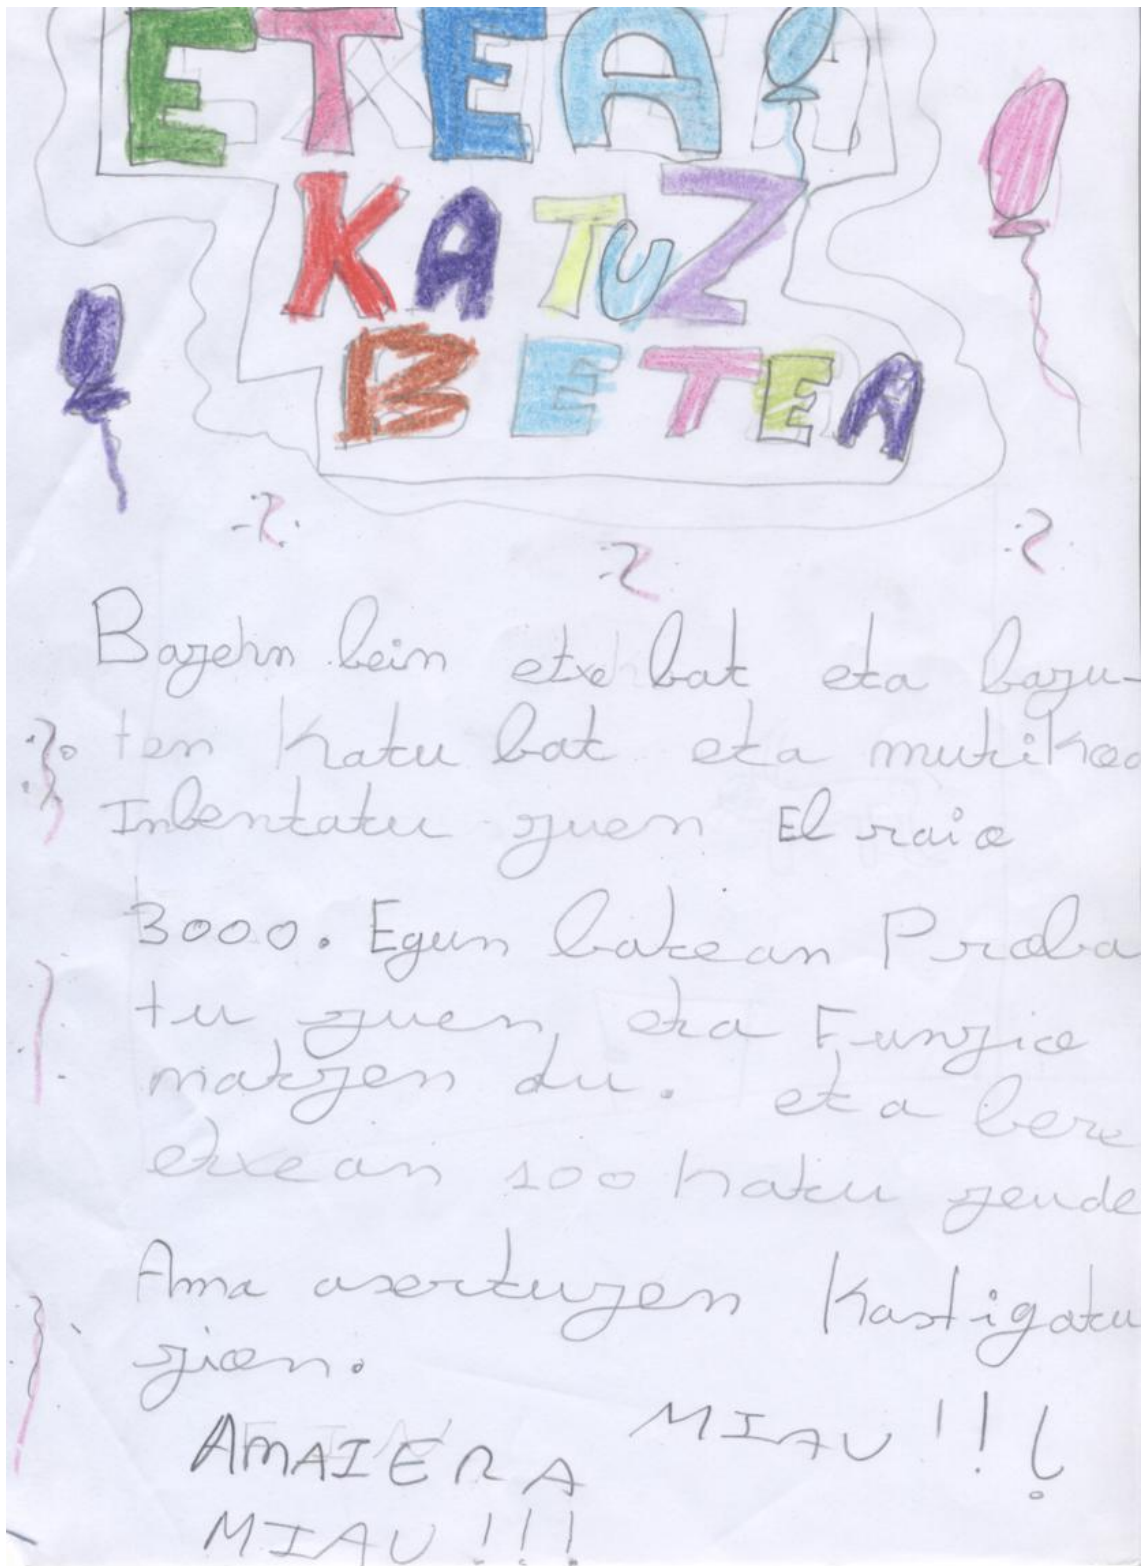 ETEA
KATUZ
BETEA
Bazehn bein etxe bat eta bazu-
ten katu bat eta mutikoa
Inbentatu zuen El raio
3000. Egun batean Proba
tu zuen, eta Funzio
matzen du. eta bere
etxean 100 katu zende
Ama asertuzen kastigatu
zion.
MIAU!!!
AMAIERA
MIAU!!!